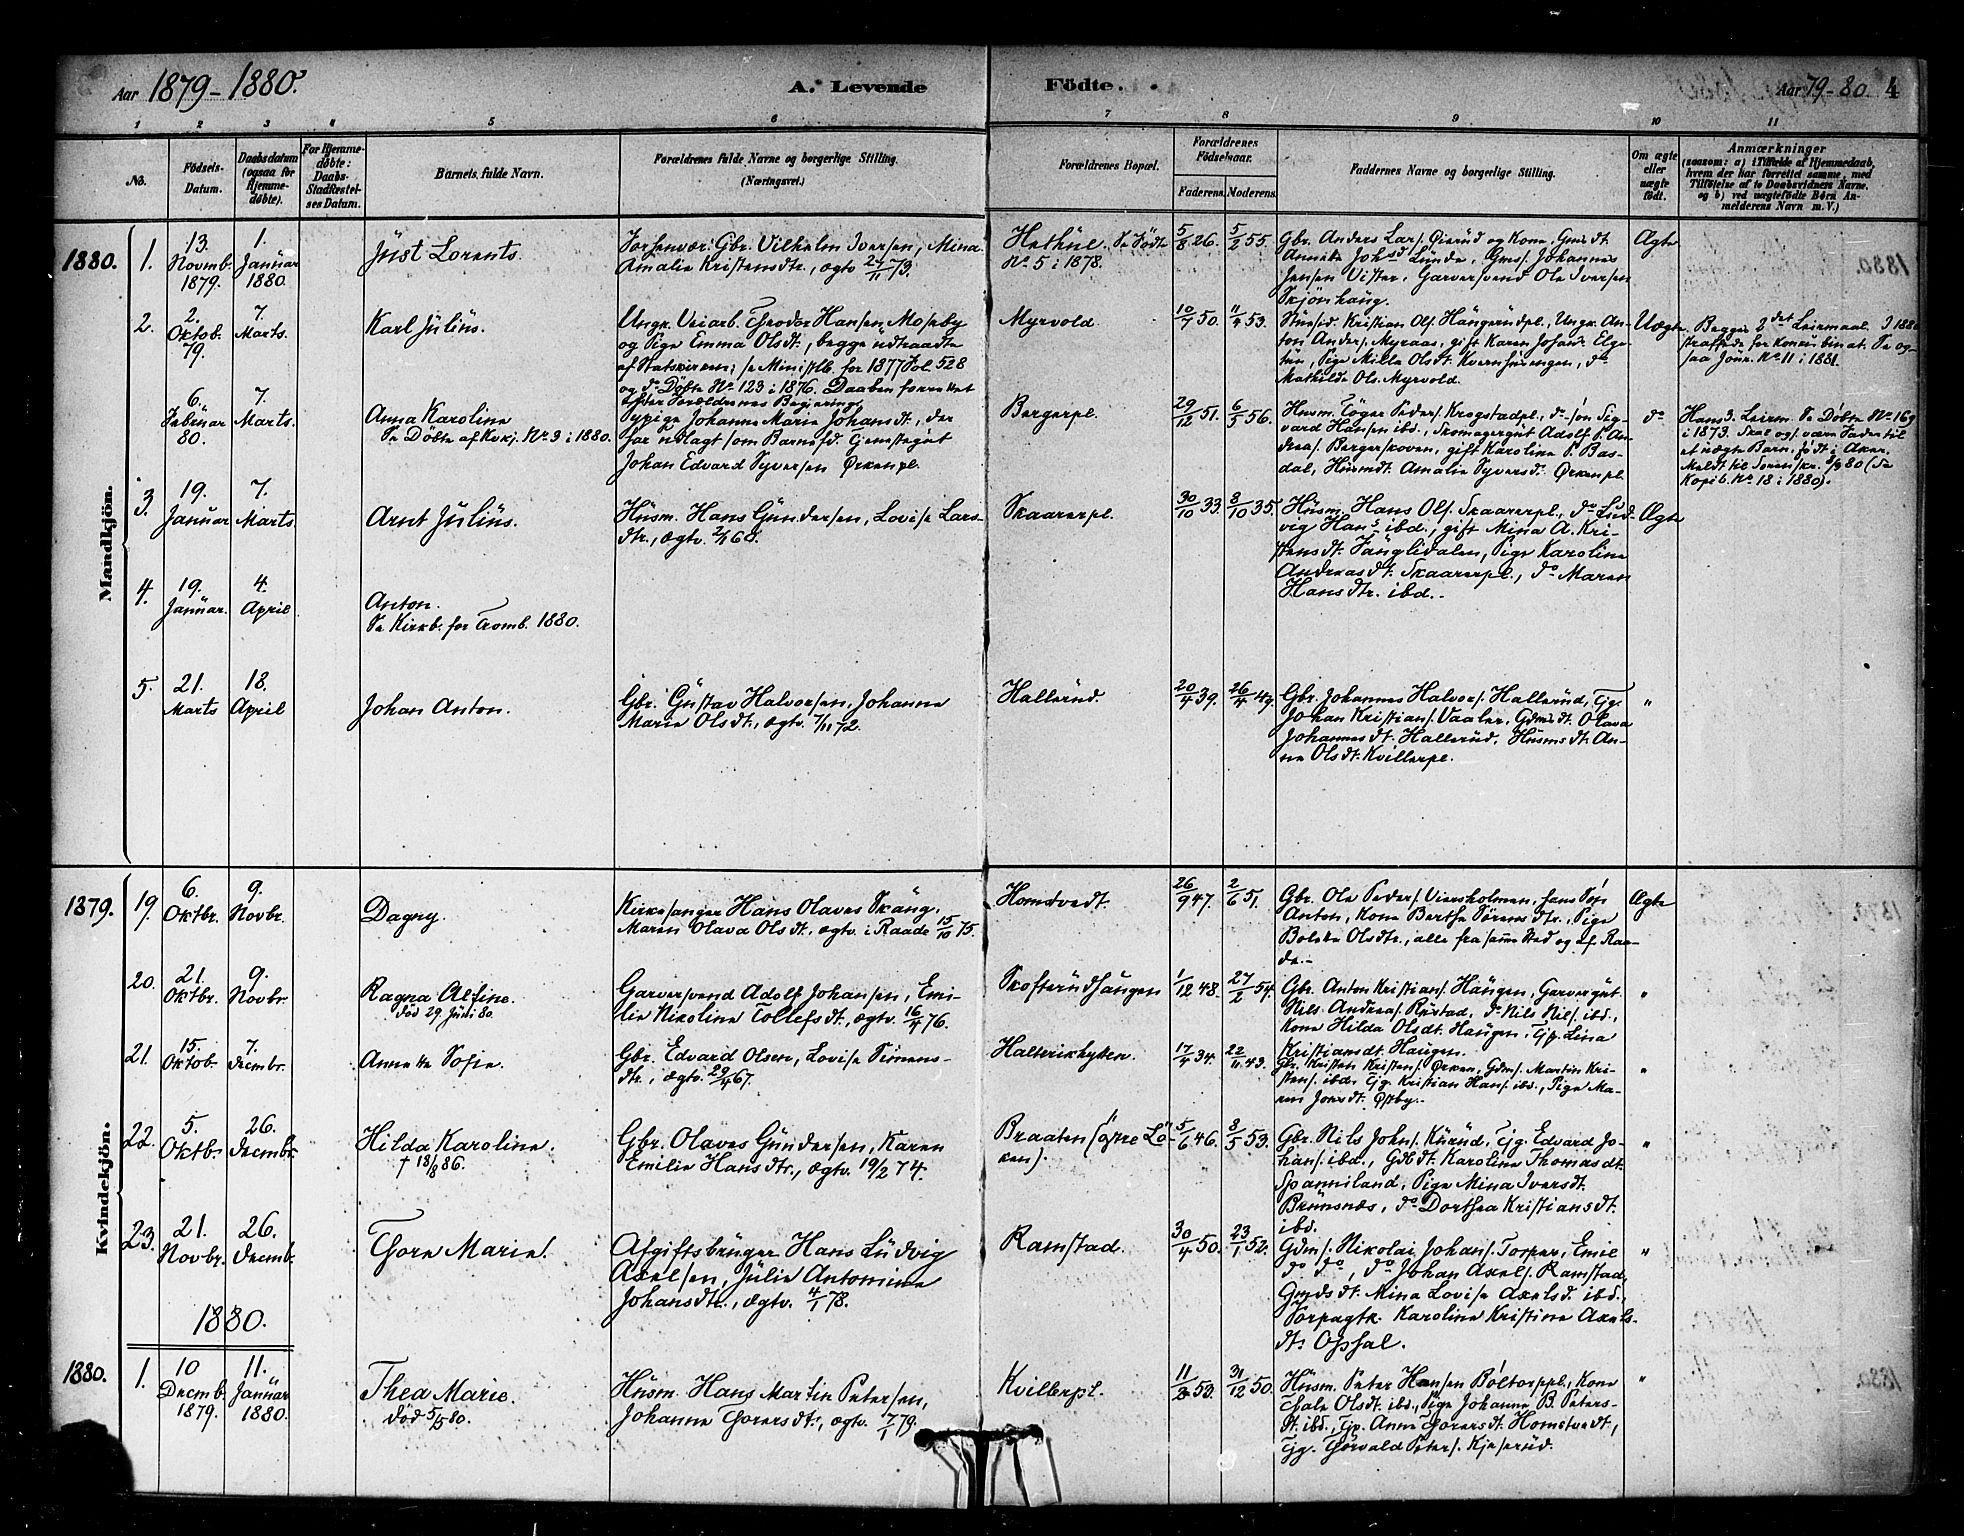 Aar 1879-1880.
A. Levende
Födte.
Aar 79-80. 4
1 2 3 4 5 6 7 8 9 10 11
No.
Födsels-
Datum.
Daabsdatum
(ogsaa for
Hjemme-
döbte).
For Hjemme-
döbte:
Daabs-
Stadfæstel-
ses Datum.
Barnets fulde Navn.
Forældrenes fulde Navne og borgerlige Stilling.
(Næringsvei.)
Forældrenes Bopæl.
Forældrenes
Födselsaar.
Faderens. Moderens.
Faddernes Navne og borgerlige Stilling.
Om ægte
eller
uægte
födt.
Anmærkninger
(saasom: a) i Tilfælde af Hjemmedaab,
hvem der har forrettet samme, med
Tilföielse af to Daabsvidners Navne.
og b) ved uægtefödte Börn An-
melderens Navn m. V.)
Mandkjön.
1880. 1.
13.
Novmb.
1879.
1.
Januar
1880.
Just Lorents.
Gbr. Vilhelm Iversen, Mina
Amalie Kristensdtr., ægtv.
Se Födte
No. 5 i 1878.
5/8 26.
5/2 55.
Gbr. Anders Lars. Öierud og Kone, Gmsdt.
Lunde, Gms. Johannes
Jensen Vister, Garversvend Ole Iversen
Skjönhaug.
Ægte
2.
2.
Oktob.
79.
7.
Marts.
Karl Julius.
Ungk. Veiarb. Theodor Hansen Moseby
og Pige Emma Olsdt., begge udtraadte
af Statskirken; se Ministlb. for 1877 Fol. 528
og do Döbte No. 123 i 1876. Daaben forrettet
efter Forældrenes Begjering.
Myrvold.
10/7 50.
11/4 53.
Kristian Ols. Haugerudpl., Ungk. An-
ton Anders. Myraas, gift Karen Johand.
Pige Milla Olsdt. Kvernhusengen, do
Mathilde Ols. Myrvold.
Uægte
Begges 2det Leirmaal. I 1880
straffede for Konkubinat. Se og-
saa Jour. No. 11 i 1881.
6.
Februar
80.
7.
Marts.
Anna Karoline
Se Döbte af Kvkj. No. 3 i 1880.
Sypige Johanne Marie Johansdt., der
har udlagt som Barnefd. Gjemsegut
Johan Edvard Syversen Ørkenpl.
Bergerpl.
29/12 51.
6/5 56.
Husm. Töger Peders. Krogstadpl., do sön Sig-
vard Hansen ibd., Skomagergut Adolf P. An-
dreas. Bergerskoven, gift Karoline P. Bas-
dal, Husmdt. Amalie Syversd. Ørkenpl.
do
Hans 3. Leirm. Se Döbte No. 169
i 1873. Skal ogs. være Fader til
et uægte Barn, födt i Aker.
Meldt til Sorenskr. 8/3 80 (Se
Kopib. No. 18 i 1880).
3.
19.
Januar
7.
Marts.
Arnt Julius.
Husm. Hans Gundersen, Lovise Lars-
dtr., ægtv.
Skaarerpl.
30/10 33.
8/10 35.
Husm. Hans Ols. Skaarerpl., do Lud-
vig Hans. ibd., gift Mina A. Kri-
stensdt. Fanglidalen, Pige Karoline
Andreasdt. Skaarerpl., do Maren
Hansdtr. ibd.
Ægte
4.
19.
Januar.
4.
April
Anton.
Se Kirkb. for Tromb. 1880.
5.
21.
Marts
18.
April
Johan Anton.
Gbr. Gustav Halvorsen, Johanne
Marie Olsdt., ægtv. 7/11 72.
Hallerud.
20/4 39.
26/4 49.
Gbr. Johannes Halvors. Hallerud, Tjg.
Johan Kristians. Vaaler, Gdmsdt. Olava
Johannesdt. Hallerud, Husmsdt. An-
ne Olsdt. Kvillerpl.
"
Kvindekjön.
1879. 19.
6.
Oktbr.
9.
Novbr.
Dagny.
Kirkesanger Hans Olaves Skaug,
Maren Olava Olsdt., ægtv. i Raade 15/10 75.
Homstvedt.
26/9 47.
2/6 51.
Gbr. Ole Peders. Viersholmen, hans Sön
Anton, Kone Berthe Sörensdtr., Pige
Bolette Olsdtr., alle fra samme Sted og af Raa-
de.-
Ægte
20.
21.
Oktbr.
9.
Novbr.
Ragna Alfine.
död 29 Juni 80.
Garversvend Adolf Johansen, Emi-
lie Nikoline Tollefsdt., ægtv. 16/4 76.
Skofterudhaugen
1/12 48.
27/2 54.
Gbr. Anton Kristians. Haugen, Garvergut
Nils Andreas. Rustad, do Nils Nils. ibd.,
Kone Hilda Olsdt. Haugen, Tjp. Lina
Kristiansdt. Haugen.
"
21.
15.
Oktob.
7.
Decmbr.
Annette Sofie.
Gbr. Edvard Olsen, Lovise Simens-
dtr., ægtv. 29/4 67.
17/4 34.
22/11 43.
Gbr. Kristen Kristens. Ørken, Gdms. Martin Kri-
stens. ibd., Tjg. Kristian Hans. ibd., Pige Ma-
ren Jonsdt. Østby.
"
22.
5.
Oktbr.
26.
Decmbr.
Hilda Karoline.
† 18/8 86.
Gbr. Olaves Gundersen, Karen
Emilie Hansdtr., ægtv. 19/2 74.
Braaten (öfre Lö-
ken).
5/6 46.
8/5 53.
Gbr. Nils Johs. Kurud, Tjg. Edvard Jo-
hans. ibd., Gdbdt. Karoline Thomasdt.
Spanniland, Pige Mina Iversdt.
Brömsnæs, do Dorthea Kristiansdt.
ibd.
"
23.
21.
Novbr.
26.
Decmb.
Thora Marie.
Afgiftsbruger Hans Ludvig
Axelsen, Julie Antomine
Johansdtr., ægtv. 4/1 78.
Ramstad.
30/4 50.
23/1 52.
Gdms. Nikolai Johans. Torper, Emil
do do, do Johan Axels. Ramstad,
Gmdsdt. Mina Lovise Axelsd. ibd.,
Forpagtk. Karoline Kristine Axels-
dt. Opsal.
"
1880.
1880. 1.
10
Decmb.
1879.
11.
Januar
1880.
Thea Marie.
död 5/5 80.
Husm. Hans Martin Petersen,
Johanne Thorersdt., ægtv. 7/1 79.
Kvillerpl.
53.
31/12 50.
Husm. Peter Hansen Boltorppl., Kone
Thale Olsdt. ibd., Pige Johanne B. Peters-
dt. ibd., Tjp. Anne Thorersdt. Homstvedt,
Tjg. Thorvald Peters. Kjeserud.
"